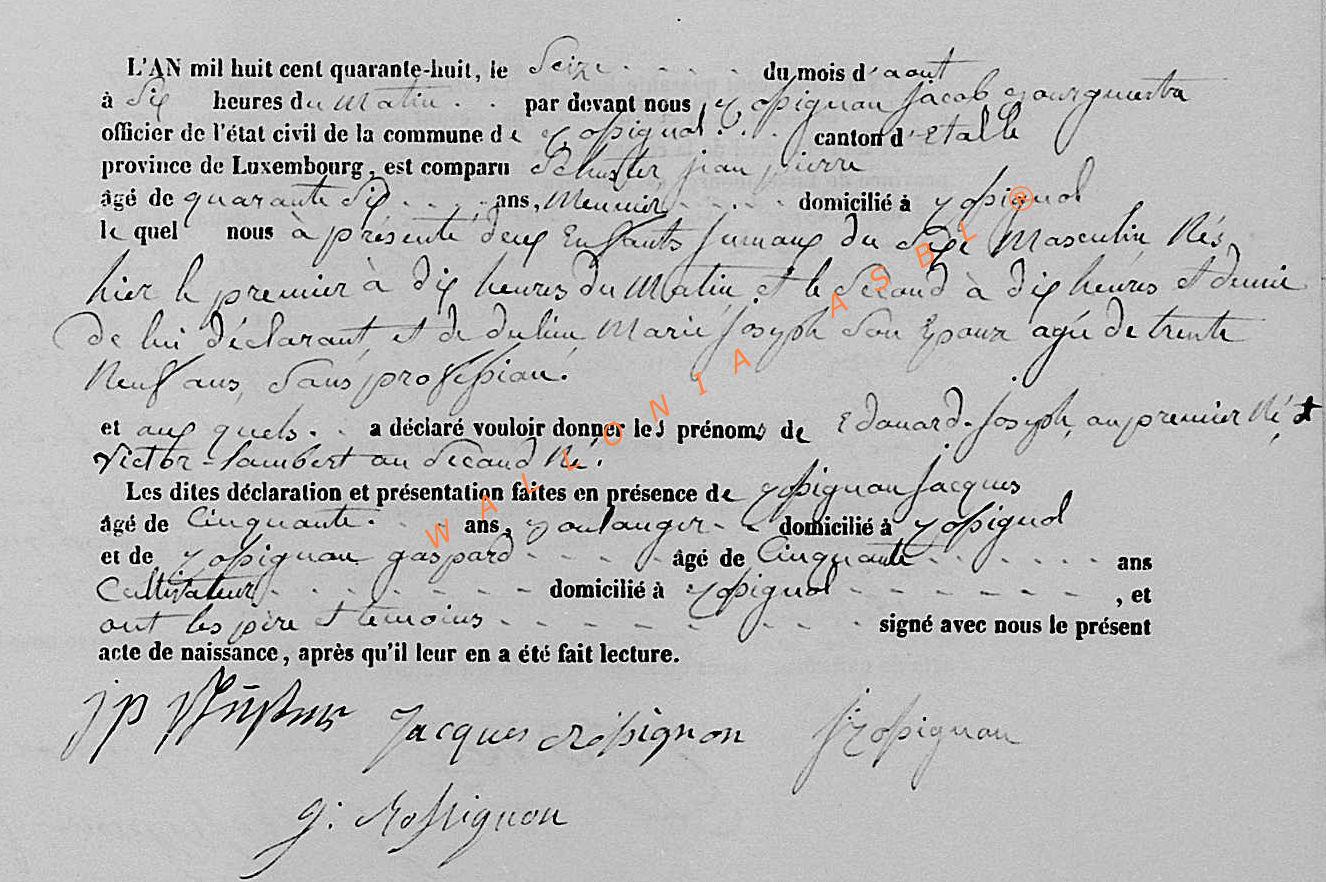 L'AN mil huit cent quarante-huit, le Seize du mois d'aout
à Six heures du Matin par devant nous, Rossignon Jacob Bourgmestre
officier de l'état civil de la commune de Rossignol canton d'Etalle
province de Luxembourg, est comparu Schuster jean pierre
âgé de quarante Six ans, Meunier domicilié à Rossignol
le quel nous à présenté deux Enfants Jumaux du Sexe Masculin Nés
hier le premier à dix heures du Matin et le Second à dix heures et demie
de lui déclarant, et de Marie Joseph Son Epouse agée de trente
Neuf ans, Sans profession.
et aux quels a déclaré vouloir donner les prénoms de Edouard-Joseph, au premier Né, et
Victor-Lambert au Second Né.
Les dites déclaration et présentation faites en présence de Rossignon Jacques
âgé de Cinquante ans, Boulanger domicilié à Rossignol
et de Rossignon gaspard âgé de Cinquante ans
Cultivateur domicilié à Rossignol, et
ont les père et temoins signé avec nous le présent
acte de naissance, après qu'il leur en a été fait lecture.
jp Schuster Jacques Rossignon J Rossignon
g. Rossignon
WALLONIA ASBL ®